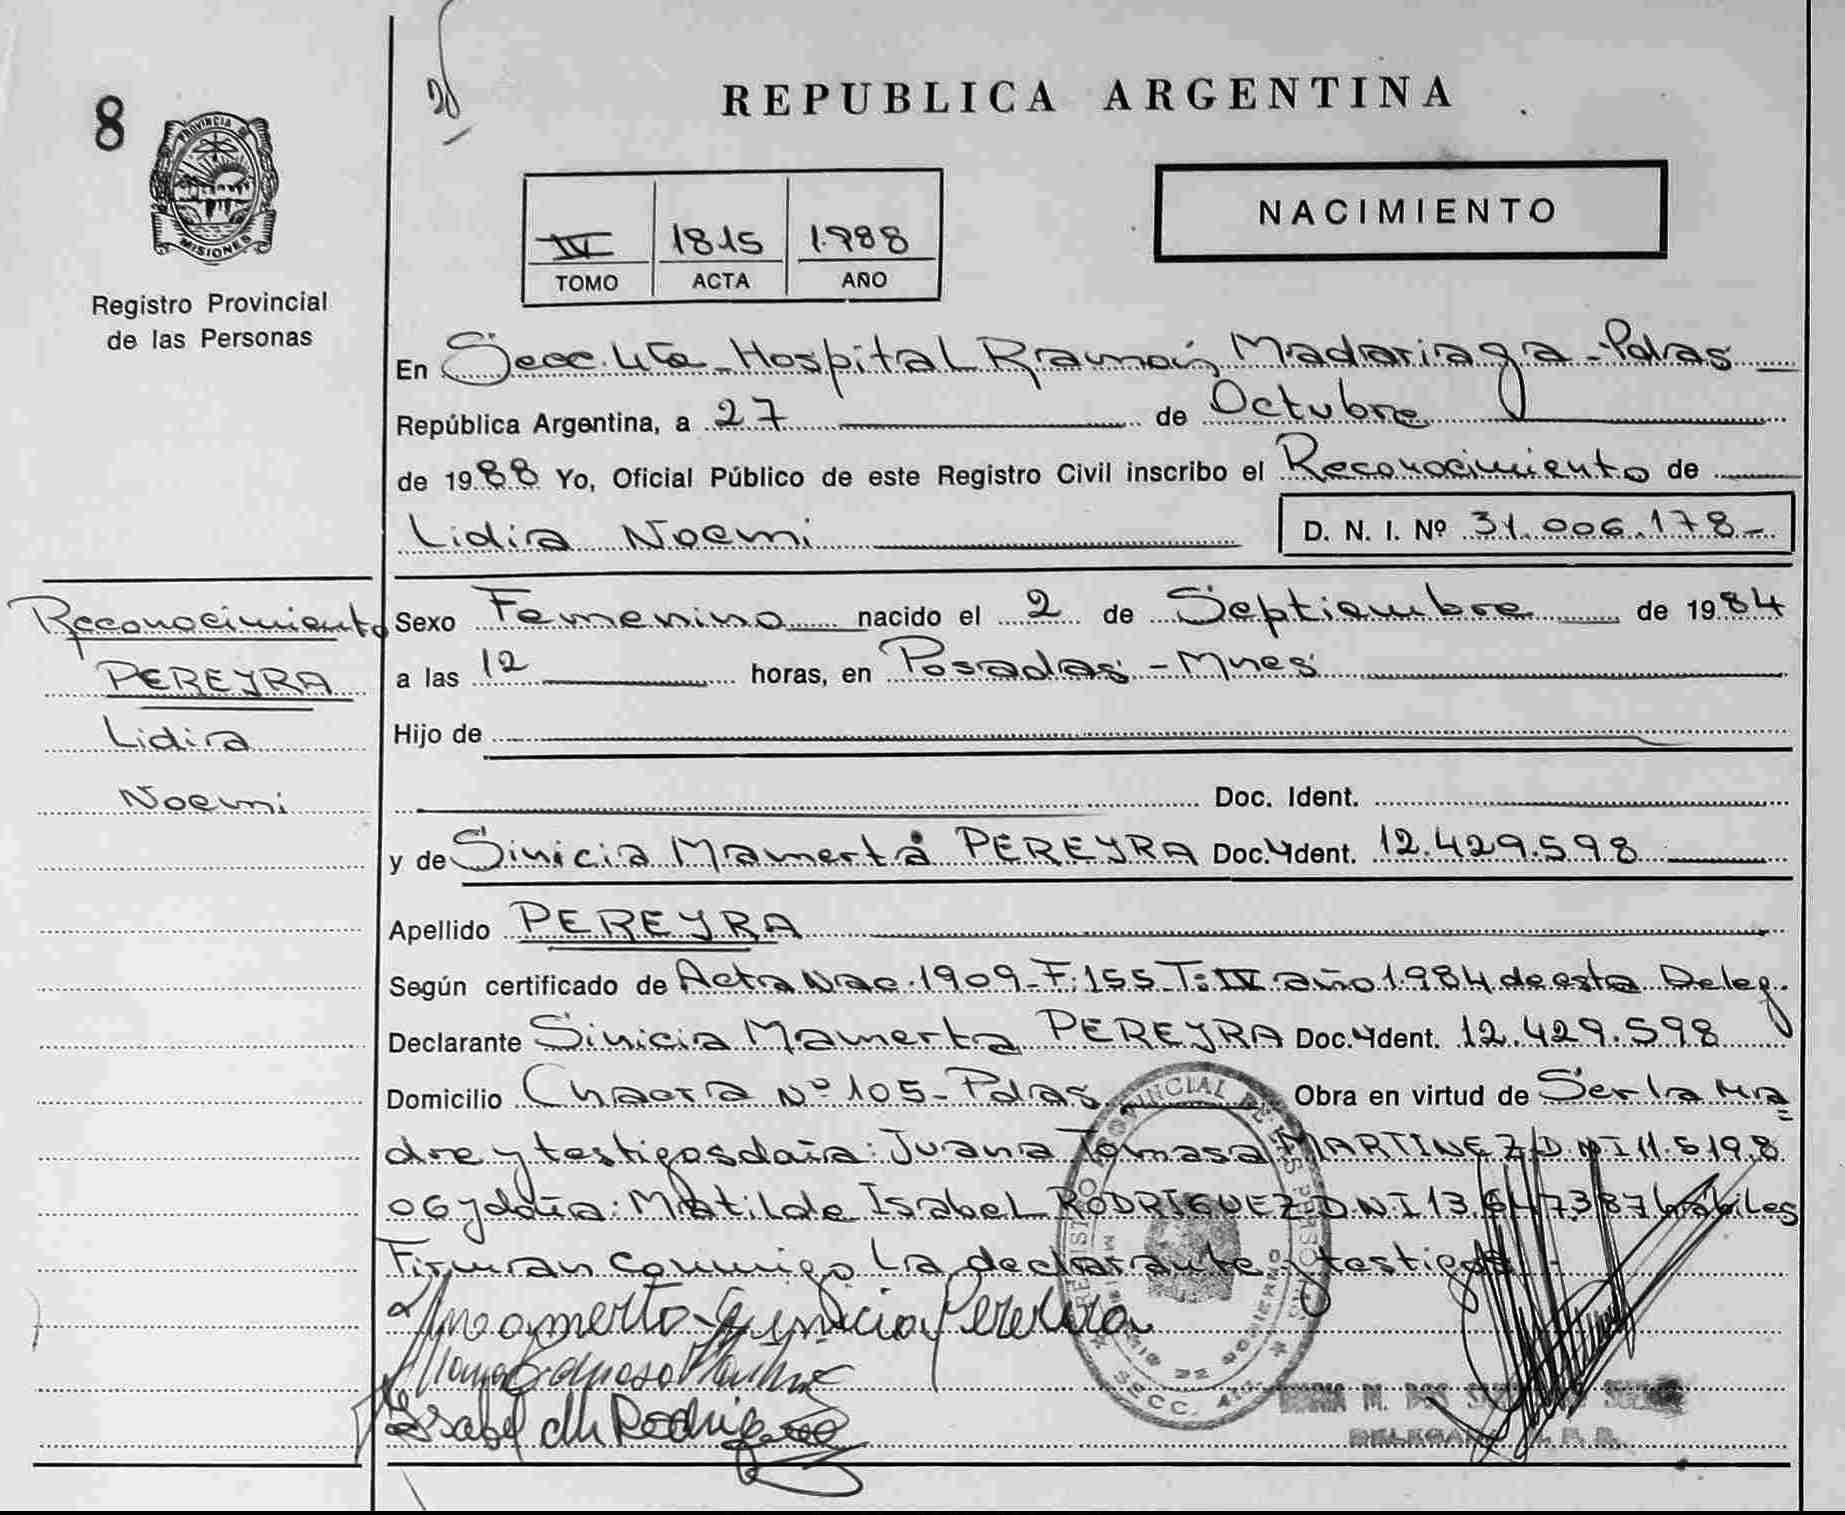 8
PROVINCIA DE
MISIONES
Registro Provincial
de las Personas
REPUBLICA ARGENTINA
NACIMIENTO
IV 1815 1.988
TOMO ACTA AÑO
En Secc. 4ta - Hospital Ramón Madariaga - Pdas
República Argentina, a 27 de Octubre
de 1988 Yo, Oficial Público de este Registro Civil inscribo el Reconocimiento de
Lidia Noemi D. N. I. Nº 31.006.178-
Reconocimiento
PEREYRA
Lidia
Noemi
Sexo Femenino nacido el 2 de Septiembre de 1984
a las 12 horas, en Posadas - Mnes
Hijo de
Doc. Ident.
y de Sinicia Mamerta PEREYRA Doc. Ident. 12.429.598
Apellido PEREYRA
Según certificado de Acta Nac. 1909 - F: 155 - T: IV año 1984 de esta Deleg.
Declarante Sinicia Mamerta PEREYRA Doc. Ident. 12.429.598
Domicilio Chacra Nº 105 - Pdas Obra en virtud de Ser la ma
dre y testigos doña: Juana Tomasa MARTINEZ D.N.I 11.519.8
06 y doña: Matilde Isabel RODRÍGUEZ D.N.I 13.647.387 hábiles
Firman conmigo la declarante y testigos -
Isabel M Rodriguez
SECC. 4ta.